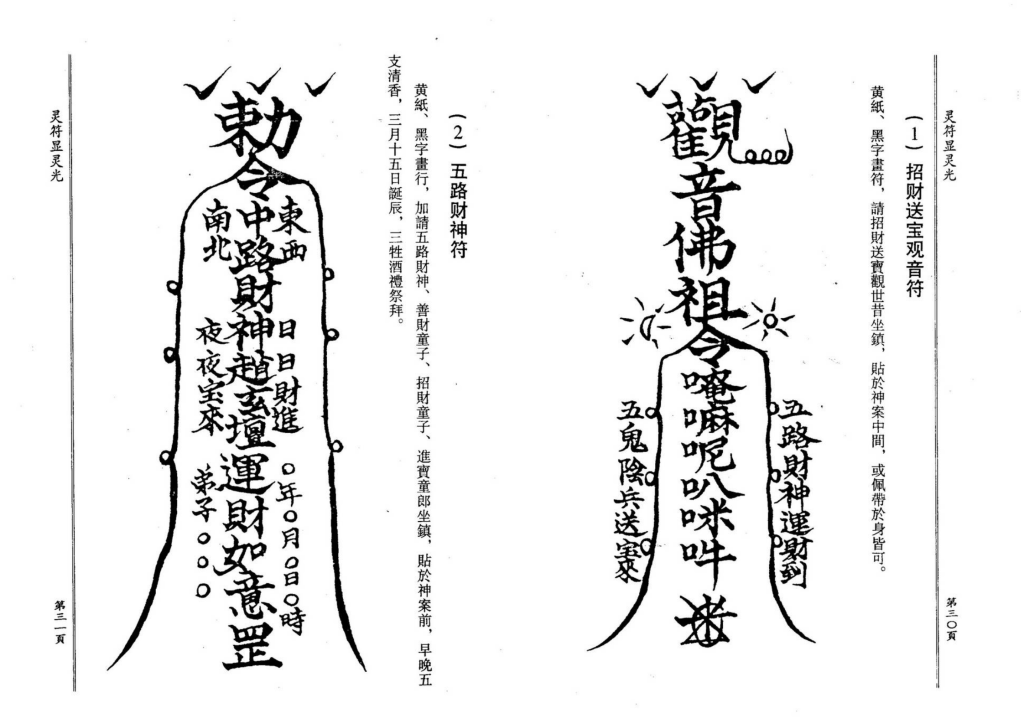 灵符显灵光
(1) 招财送宝观音符
黄紙、黑字畫符，請招財送寶觀世昔坐鎮，貼於神案中間，或佩帶於身皆可。
觀音佛祖令唵嘛呢叭咪吽
五路財神運財到
五鬼陰兵送宝來
第三〇頁
(2) 五路财神符
黄紙、黑字畫行，加請五路財神、善財童子、招財童子、進寶童郎坐鎮，貼於神案前，早晚五
支清香，三月十五日誕辰，三牲酒禮祭拜。
勅令中路財神趙玄壇運財如意罡
東西
南北
日日財進
夜夜宝來
○年○月○日○時
弟子○○○
灵符显灵光
第三一頁